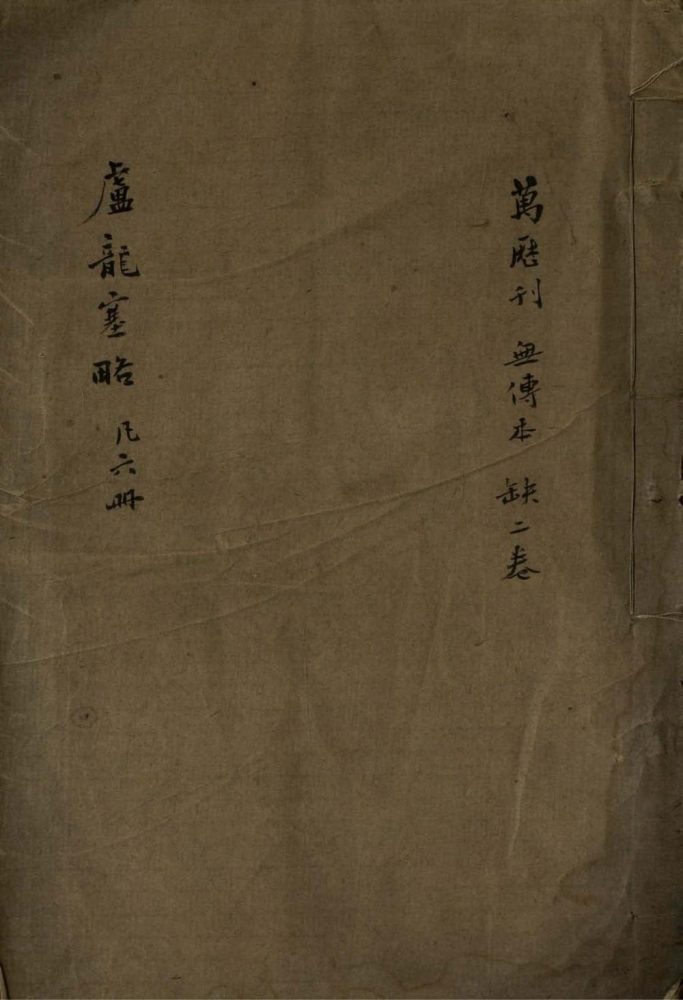 萬厯刊 無傳本 缺二卷
盧龍塞略 凡六冊